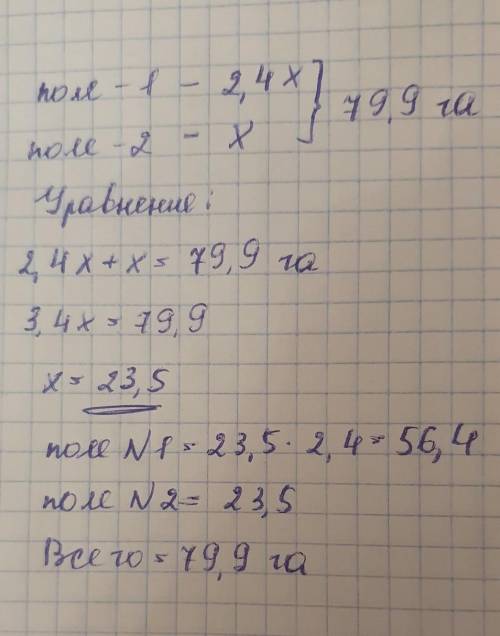 поле - 1 - 2,4x } 79,9 га
поле - 2 - x
Уравнение:
2,4x + x = 79,9 га
3,4x = 79,9
x = 23,5
поле N1 = 23,5 · 2,4 = 56,4
поле N2 = 23,5
Всего = 79,9 га